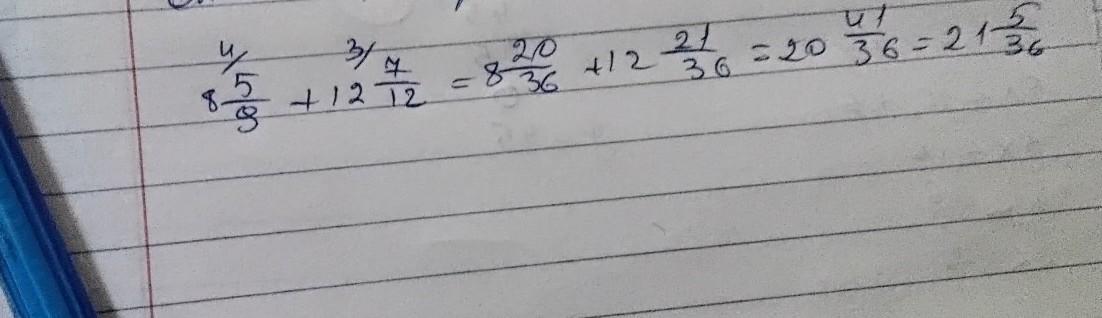 4/ 3/
8 5/9 + 12 7/12 = 8 20/36 + 12 21/36 = 20 41/36 = 21 5/36